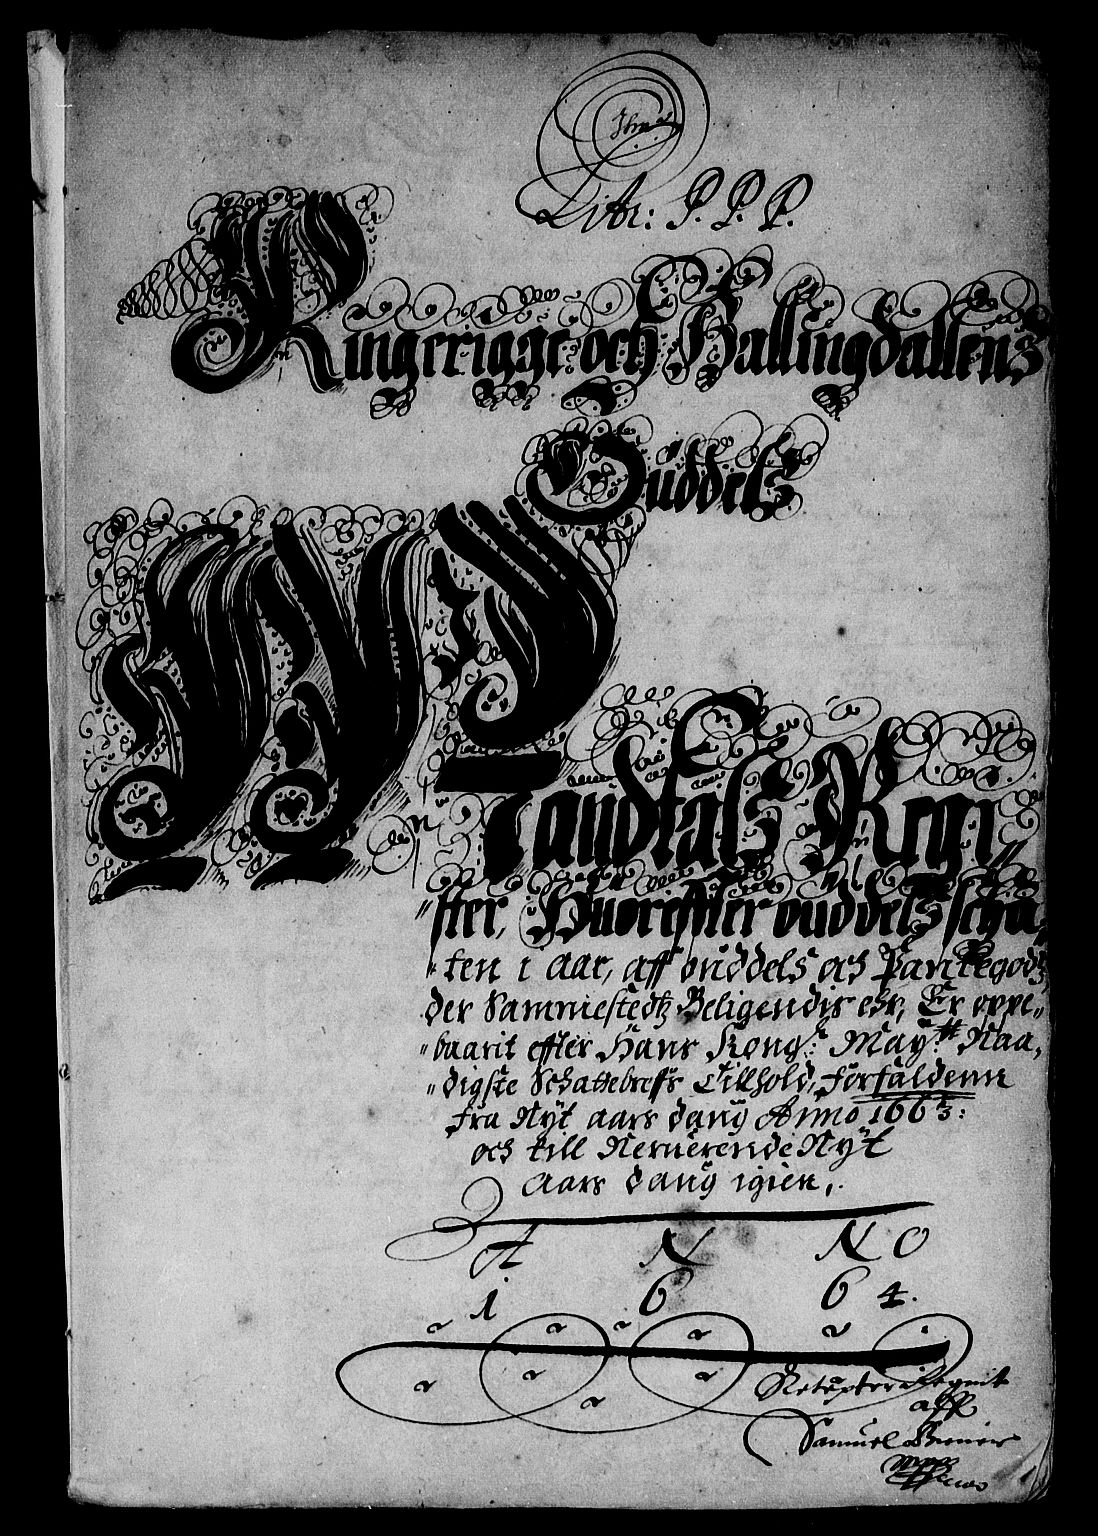 Litr: P. P. P.
Ringerigge och Hallingdallens
Oüddels
Mandtals Regi
ster, Huorefter ouddels scha
ten i aar, aff ouddels och Pantegodtz
der Sammestedtz Beligendis ehr, Er oppe
baarit effter Hans Kong: May:tt Naa
digste Schattebreffs Tillhold, forfaldenn
fra Nÿt aars daug Anno 1663:
och till Neruerende Nÿt
aars daug igien,
A N N O
1 6 6 4.
aff
Samuel